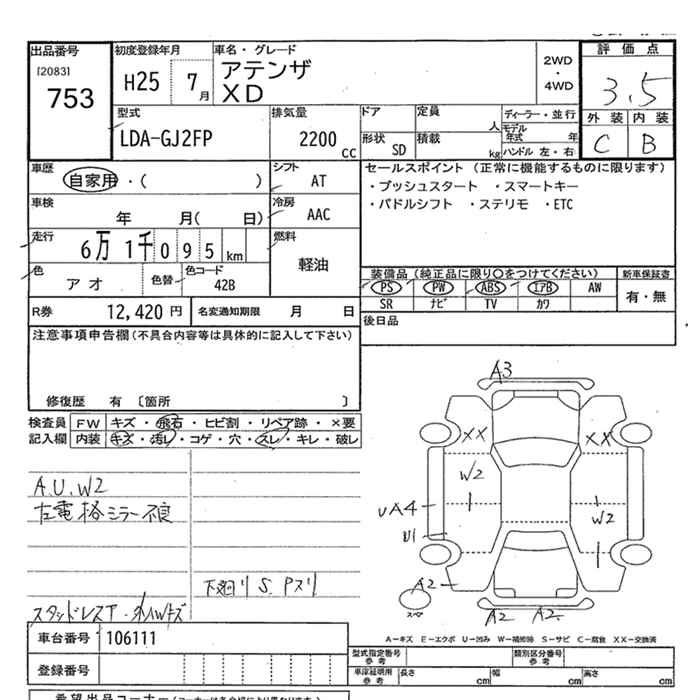 出品番号
[2083]
753
初度登録年月
H25 7月
車名・グレード
アテンザ
XD
2WD
・
4WD
評価点
3.5
外装 内装
C B
型式
LDA-GJ2FP
排気量
2200 cc
ドア 定員 人
形状 SD 積載 kg
ディーラー・並行
モデル年式 年
ハンドル 左・右
車歴
自家用・( )
シフト
AT
車検
年 月( 日)
冷房
AAC
走行
6万 1千 0 9 5 km
燃料
軽油
色
アオ
色替
色コード
42B
R券 12,420 円 名変通知期限 月 日
セールスポイント (正常に機能するものに限ります)
・プッシュスタート ・スマートキー
・パドルシフト ・ステリモ ・ETC
装備品(純正品に限り○をつけてください)
PS PW ABS エアB AW
SR ナビ TV カワ
新車保証書
有・無
後日品
注意事項申告欄(不具合内容等は具体的に記入して下さい)
修復歴 有 〔箇所 〕
検査員記入欄
FW キズ・飛石・ヒビ割・リペア跡・×要
内装 キズ・汚レ・コゲ・穴・スレ・キレ・破レ
A.U.W2
左電格ミラー不良
下廻りS.Pスリ
スタッドレスT.
A3
XX XX
W2
UA4
W2
U1
A2
A2 A2
A-キズ E-エクボ U-凹み W-補修跡 S-サビ C-腐食 XX-交換済
車台番号 106111
登録番号
型式指定番号
参考
類別区分番号
参考
車庫証明用
参考
長さ cm 幅 cm 高さ cm
希望出品コーナー